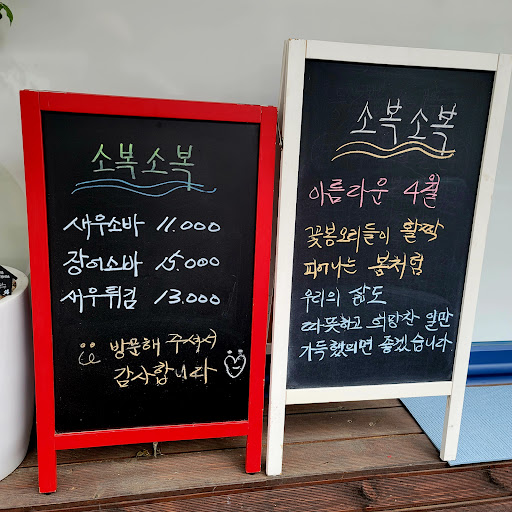 소복소복
새우소바 11.000
장어소바 15.000
새우튀김 13.000
방문해 주셔서
감사합니다
소복소복
아름다운 4월
꽃봉오리들이 활짝
피어나는 봄처럼
우리의 삶도
따뜻하고 희망찬 일만
가득했으면 좋겠습니다